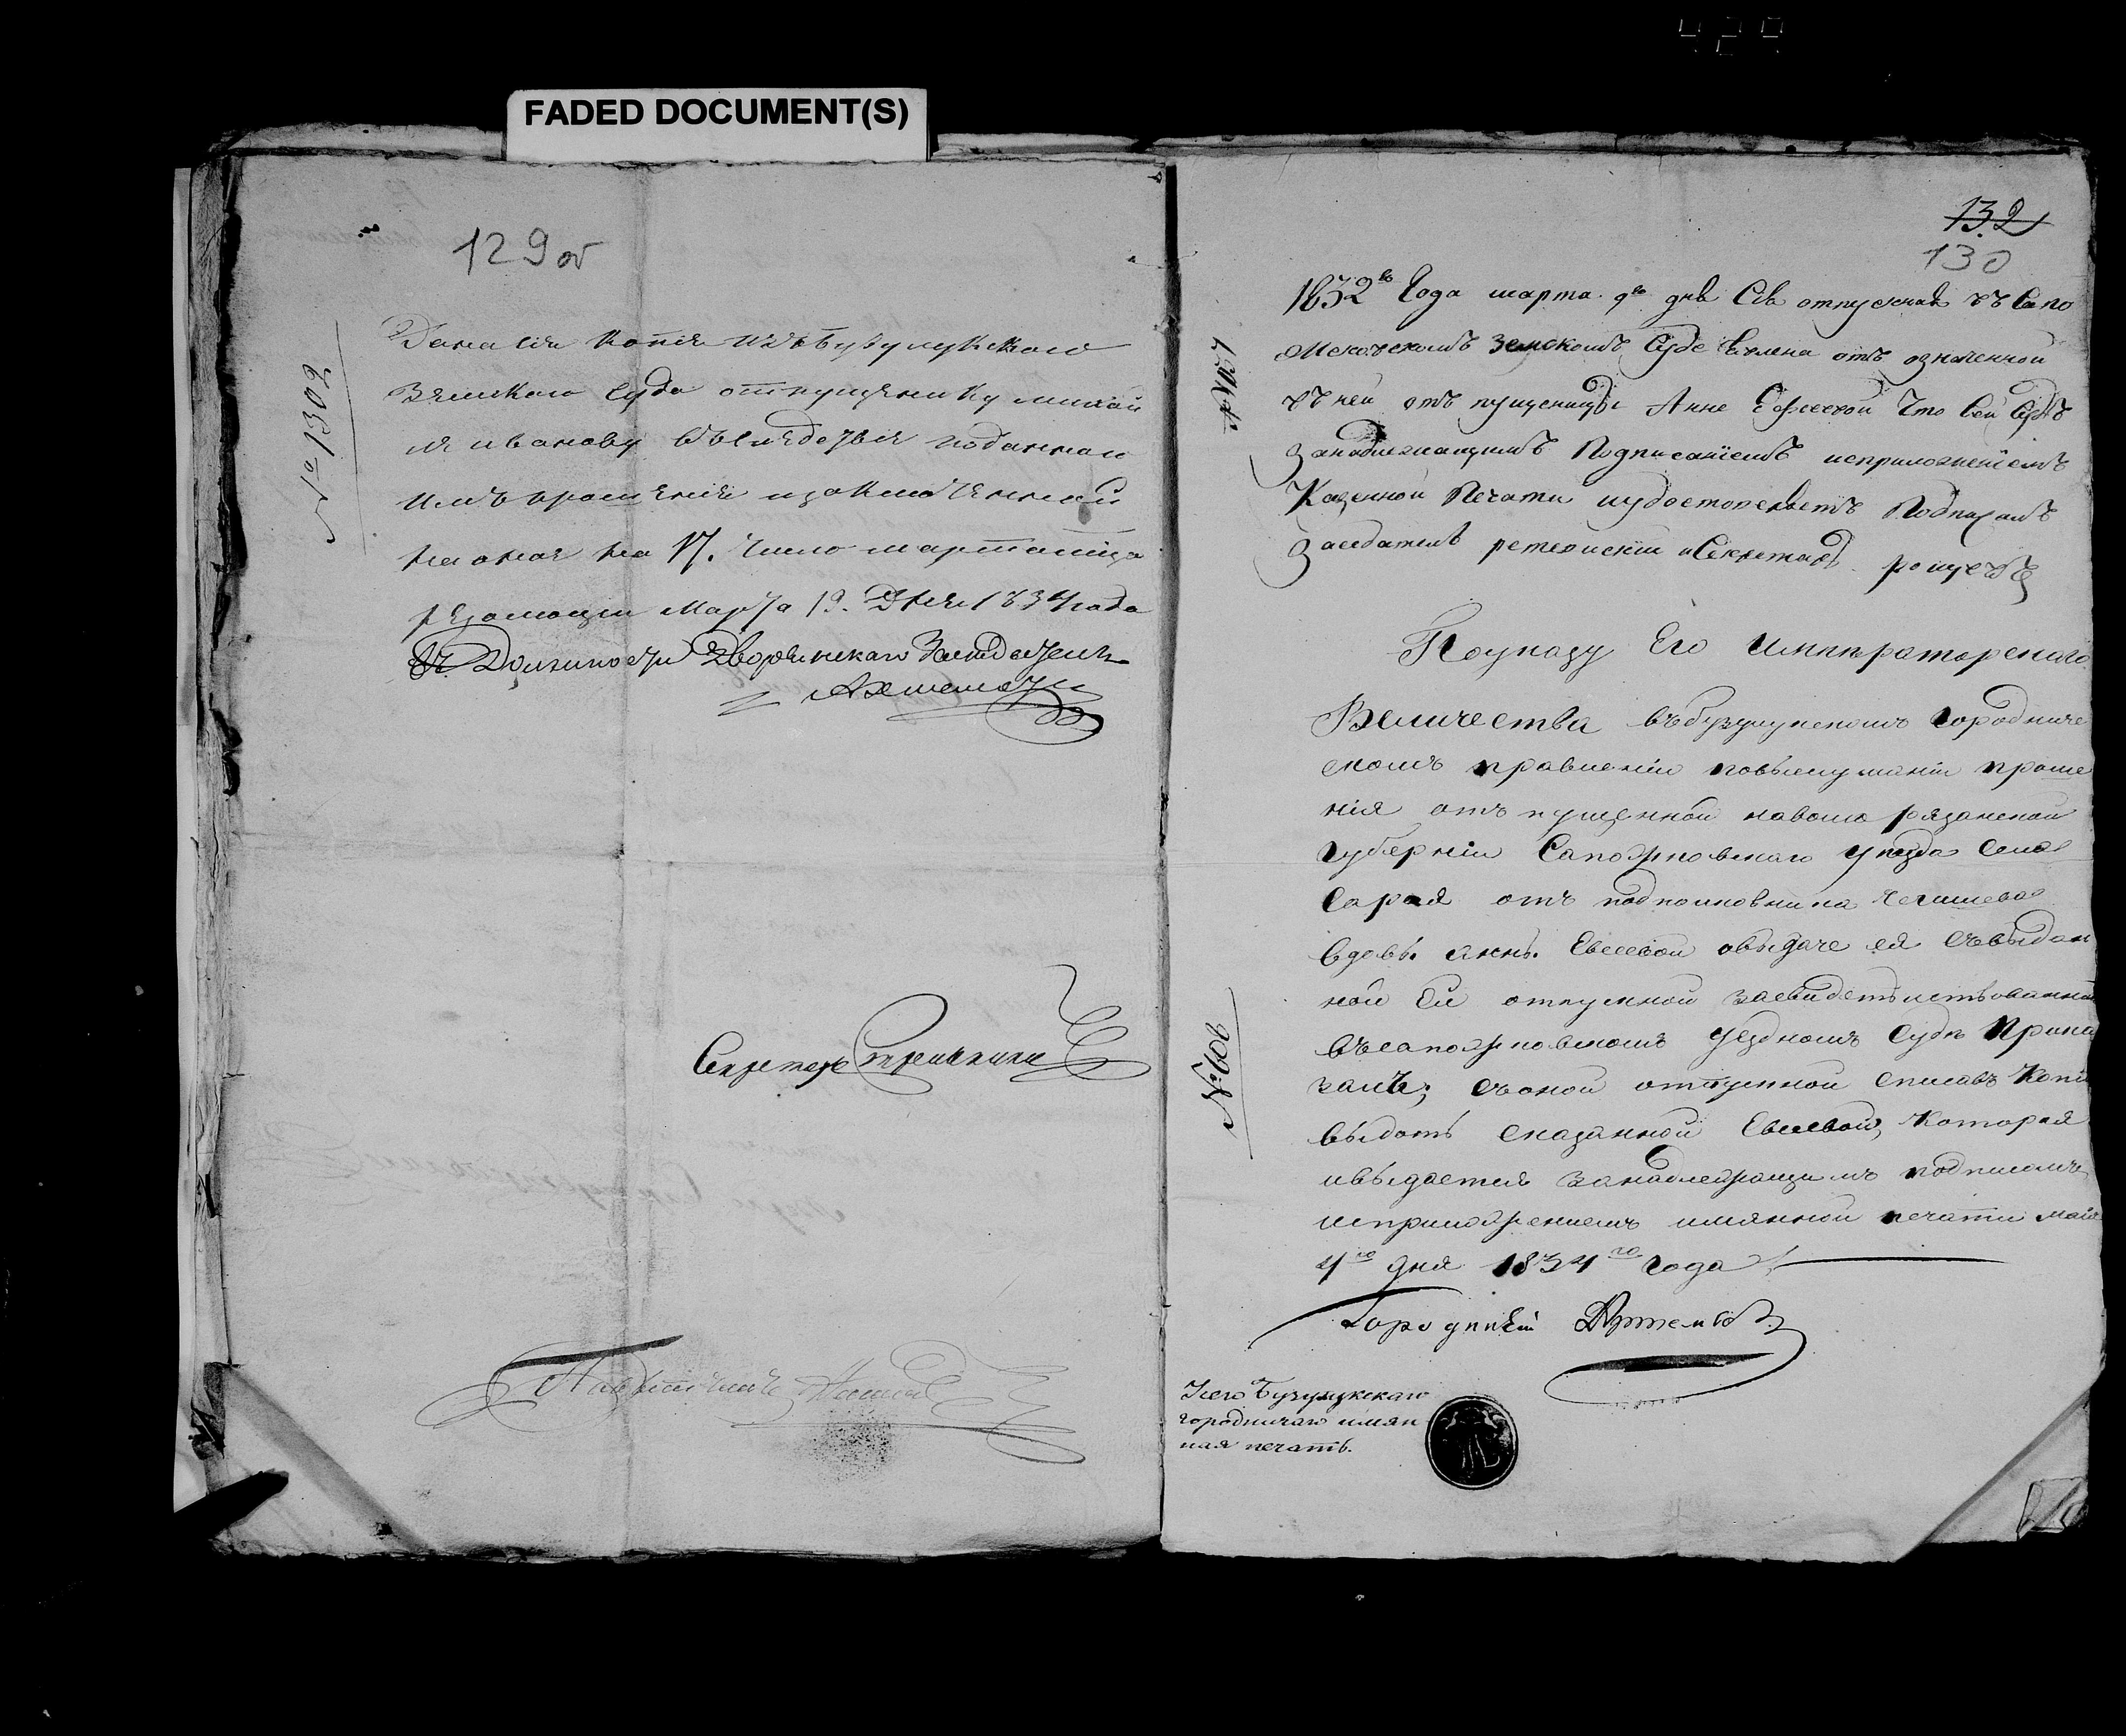 FADED DOCUMENT(S)
129 об
№ 1302
Дана сія копія изъ Бузулукскаго
Земскаго Суда отпущенику михай
ле иванову въ следствіе поданнаго
имъ прошенія и заключенной
на оное на 17. число марта м҃ца
резолюціи Марта 19. Дня 1834 года
Въ Должности Дворянскаго Заседателя
Секретарь
132
130
1832го Года марта 9го дня Сія отпускная въ Сапо
жковскомъ Земскомъ Суде явлена отъ означенной
въ ней отъ пущеницы Анне Евсеевой Что Сей Судъ
Занадлежащимъ Подписаніемъ исприложеніемъ
Казенной Печати иудостоверяетъ Подписалъ
Заседатель и Секретарь
По указу Его Императорскаго
Величества въ бузулукскомъ городниче
скомъ правленіи повыслушаніи проше
нія отъ пущенной наволю рязанской
Губерніи Сапожковскаго уезда Села
Сарая отъ подполковника
вдовы Анны Евсеевой овыдаче ея съвыдан
ной Ей отпускной засвидетельствованной
въ сапожковскомъ уездномъ Суде Прика
зали; съ оной отпускной списавъ копію
выдать сказанной Евсеевой, которая
ивыдается занадлежащимъ подписомъ
исприложеніемъ имянной печати мая
4го дня 1834го года
№ 606
Городничій Артемьевъ
У сего Бузулукскаго
городничаго имян
ная печать.